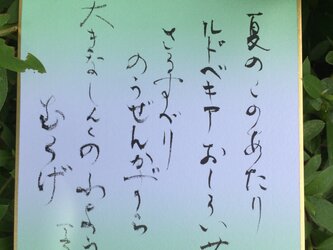 夏のこのあたり
ルドベキアおしろい
さるすべり
のうぜんかずら
大きな
むくげ